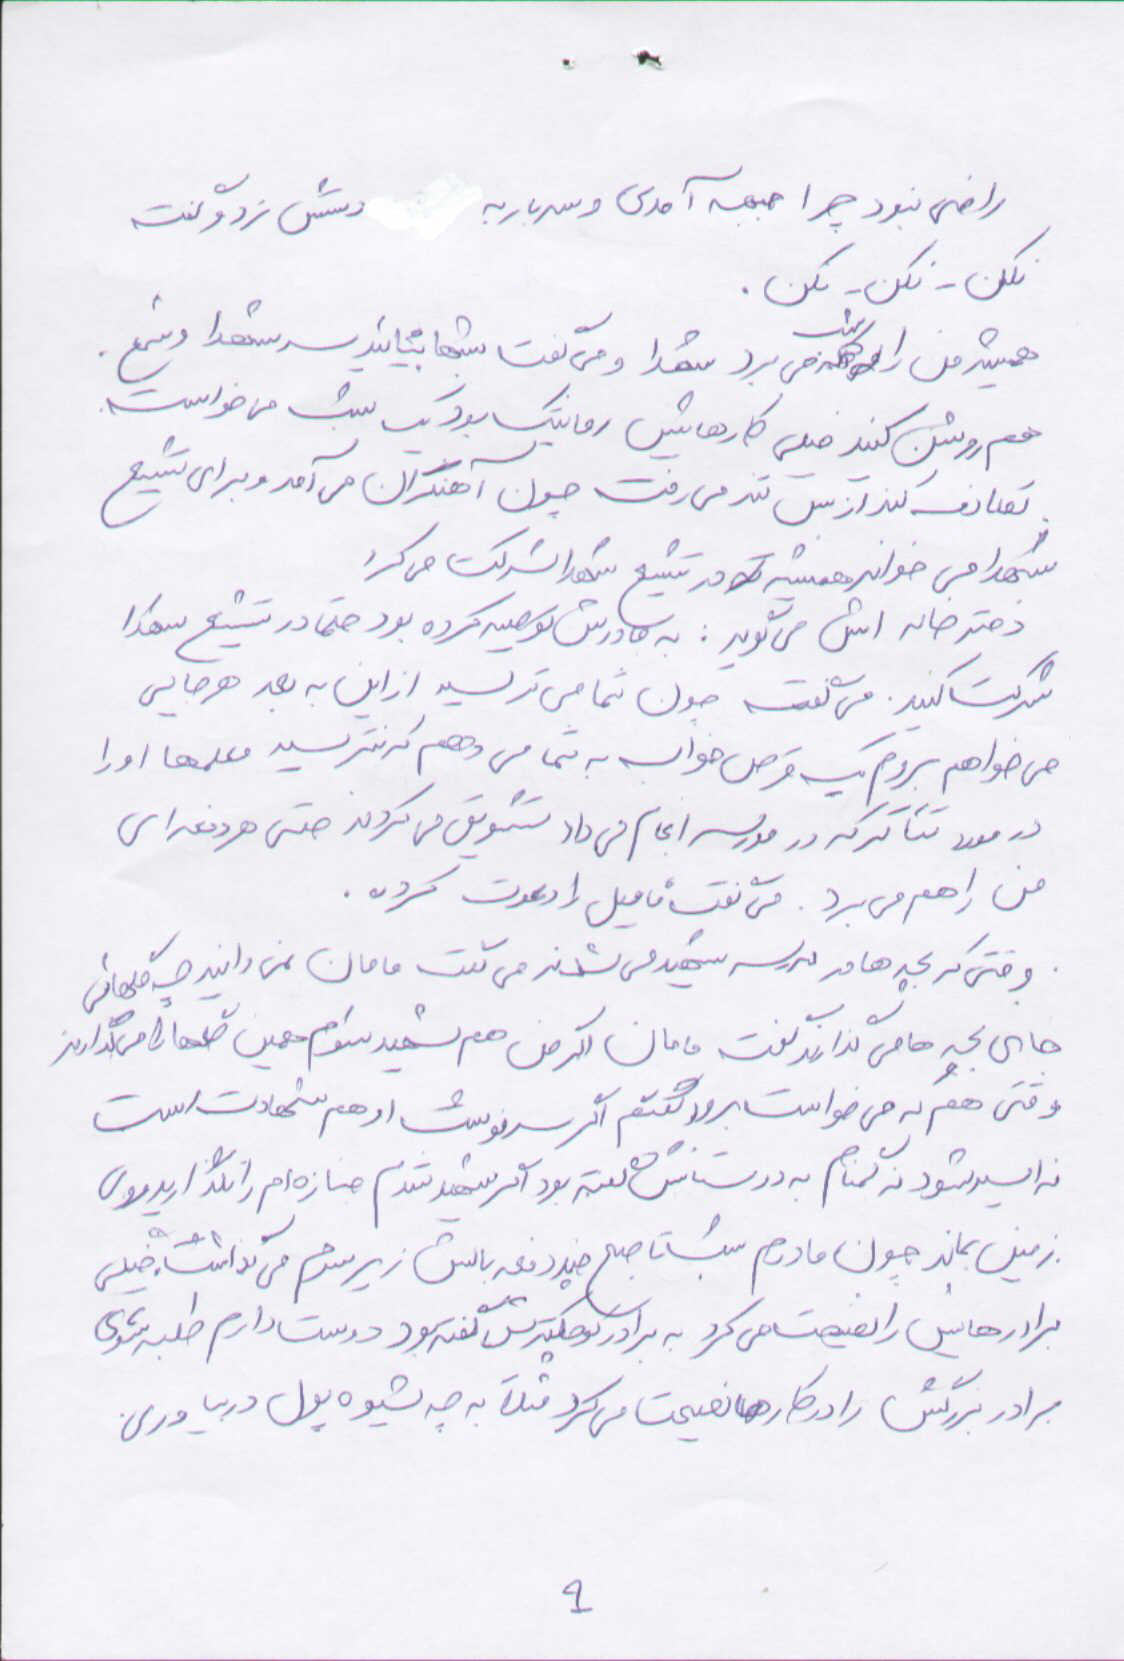 راضی نبود چرا جبهه آمدی و سه بار به دستش زد و گفت
نکن - نکن - نکن .
همیشه من را شب می برد شهدا و می گفت شبها بیائید سر شهدا و شمع .
هم روشن کنند خیلی کارهایش رمانتیک بود یک شب می خواست
تصادف کند از بس تند می رفت چون آهنگران می آمد و برای تشییع
شهدا می خواند همیشه در تشییع شهدا شرکت می کرد
دختر خاله اش می گوید : به مادرش توصیه کرده بود حتما در تشییع شهدا
شرکت کنید . می گفت چون شما می ترسید از این به بعد هر جایی
می خواهم بروم یک قرص خواب به شما می دهم که نترسید معلمها او را
در مورد تئاتر که در مدرسه انجام می داد تشویق می کردند حتی هر دفعه ای
من را هم می برد . می گفت فامیل را دعوت کرده .
وقتی که بچه ها در مدرسه شهید می شدند می گفت مامان نمی دانید چه گلهائی
جای بچه ها می گذارند گفت مامان اگر من هم شهید شوم همین گلها را می گذارند
وقتی هم که می خواست برود گفتم اگر سرنوشت او هم شهادت است
نه اسیر شود نه گمنام به دوستانش گفته بود اگر شهید شدم جنازه ام را نگذارید روی
زمین بماند چون مادرم شب تا صبح چند دفعه بالش زیر سرم می گذاشت خیلی
برادرهایش را نصیحت می کرد به برادر کوچکترش گفته بود دوست دارم طلبه شوی
برادر بزرگش را در کارها نصیحت می کرد مثلاً به چه شیوه پول در بیاوری
۹